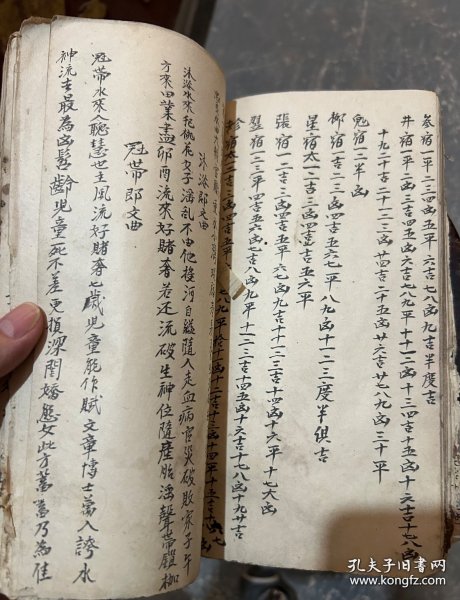 参宿一平二三四凶五平六吉七八凶九吉半度吉
井宿一平二凶三吉四五凶六七八吉九平十十一凶十二三四吉十五平十六吉十七八凶
十九二十吉二十一二三凶廿四吉二十五凶廿六吉廿七八九凶三十平
鬼宿一二半凶
柳宿一吉二三凶四吉五六七平八九凶十一二三度半俱吉
星宿太一二吉三凶四吉五六平
張宿一二吉三凶四吉五平六七凶九吉十十一二三吉十四凶十五吉十六平十七大凶
翌宿一二三平四吉五六凶七吉八凶九平十一二三吉十四平十五凶十六吉十七八凶十九廿吉
沐浴即文曲
沐浴水來犯桃花女子淫乱不由他投河自縊隨人走血病官災破敗家子午
方來田業盡卯酉流來好賭奢若还流破生神位墮產胎淫聲帶鎖枷
冠帶即文曲
冠帶水來人聰慧也主風流好賭奢七歲兒童能作賦文章博士萬人誇水
神流去最為凶髫齡兒童死不差更損深閨嬌態女此方蓄蓄乃為佳
孔夫子旧书网
www.kongfz.com